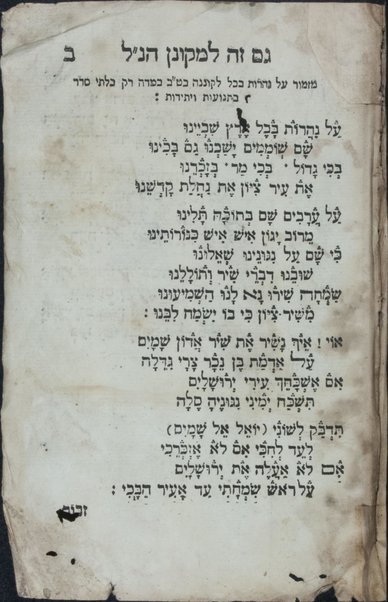 גם זה למקונן הנ״ל ב
מזמור על נהרות בבל לקוננה בט״ב בסדה רק בלתי סדר
בתנועות ויתידות :
עַל נַהֲרוֹת בָּבֶל אֶרֶץ שִׁבְיֵינוּ
שָׁם שׁוֹמְמִים יָשַׁבְנוּ גַם בָּכִינוּ
בְּכִי גָדוֹל · בְּכִי מַר · בְּזָכְרֵנוּ
אֶת עִיר צִיּוֹן אֶת נַחֲלַת קָדְשֵׁנוּ
עַל עֲרָבִים שָׁם בְּתוֹכָהּ תָּלִינוּ
מֵרוֹב יָגוֹן אִישׁ אִישׁ כִּנּוֹרוֹתֵינוּ
כִּי שָׁם עַל נִגּוּנֵינוּ שְׁאֵלוּנוּ
שׁוֹבֵנוּ דִבְרֵי שִׁיר וְתוֹלָלֵנוּ
שִׂמְחָה שִׁירוּ נָא לָנוּ הַשְׁמִיעוּנוּ
מִשִּׁיר צִיּוֹן כִּי בוֹ יִשְׂמַח לִבֵּנוּ :
אוֹי ! אֵיךְ נָשִׁיר אֶת שִׁיר אֲדוֹן שָׁמָיִם
עַל אַדְמַת בֶּן נֵכָר צָרֵי גְדֵלָה
אִם אֶשְׁכָּחֵךְ עִירִי יְרוּשָׁלַיִם
תִּשְׁכַּח יְמִינִי נִגּוּנֶיהָ סֶלָה
תִּדְבַּק לְשׁוֹנִי (יוֹאֵל אֵל שָׁמָיִם)
לָעַד לְחִכִּי אִם לֹא אֶזְכְּרֵכִי
אִם לֹא אַעֲלֶה אֶת יְרוּשָׁלַיִם
עַל רֹאשׁ שִׂמְחָתִי עַד אָעִיר הַבָּכִי :
זכור